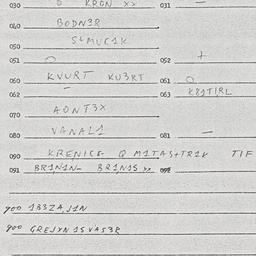 030 O KRON xx 031 —
040 BODN3R
050 SLMUC1K
051 O 052 +
060 KVURT KU3RT 061 O
062 — 063 K81T1RL
070 AONT3X
080 VANAL1 081 —
090 KRENICE Q M1TAS+TR1K TIF
091 BR1N1N- BR1N1S xx 092
900 1B3ZA,J1N
900 GREJXN1SVAS3R